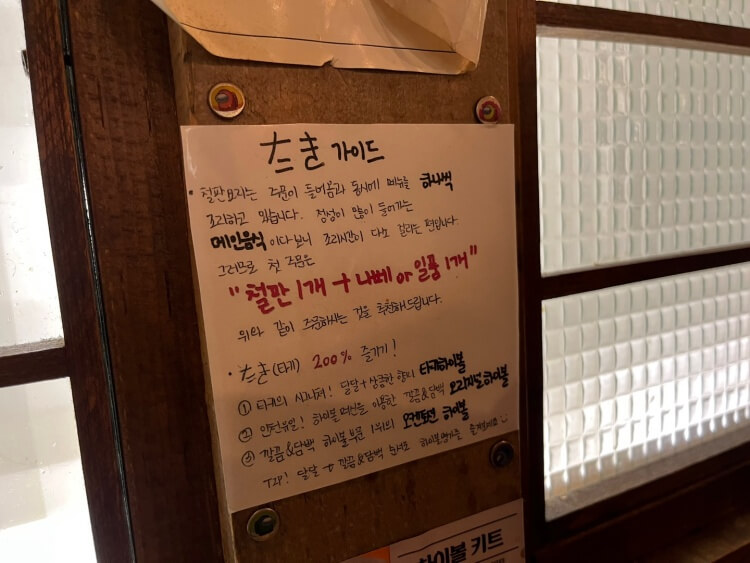 たき 가이드
• 철판요리는 주문이 들어옴과 동시에 메뉴를 하나씩
조리하고 있습니다. 정성이 많이 들어가는
메인음식이다보니 조리시간이 다소 걸리는 편입니다.
그러므로 첫 주문은
"철판 1개 + 나베 or 일품 1개"
위와 같이 주문하시는 것을 추천해드립니다.
• たき(타키) 200% 즐기기!
① 타키의 시그니처! 달달+상큼한 향의 타키하이볼
② 인턴뷰일! 하이볼머신을 이용한 깔끔&담백 오리지널하이볼
③ 깔끔&담백 하이볼부문 1위의 오켄토션 하이볼
TIP! 달달 → 깔끔&담백 순서로 하이볼 즐겨보세요
하이볼 키트